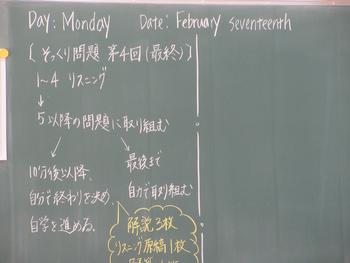 Day: Monday Date: February seventeenth
〔そっくり問題 第4回(最終)〕
1~4 リスニング
↓
5以降の問題に取り組む
↙ ↘
10分後以降、
自分で終わりを決め、
自学を進める。
最後まで
自分で取り組む
解説3枚
リスニング原稿1枚